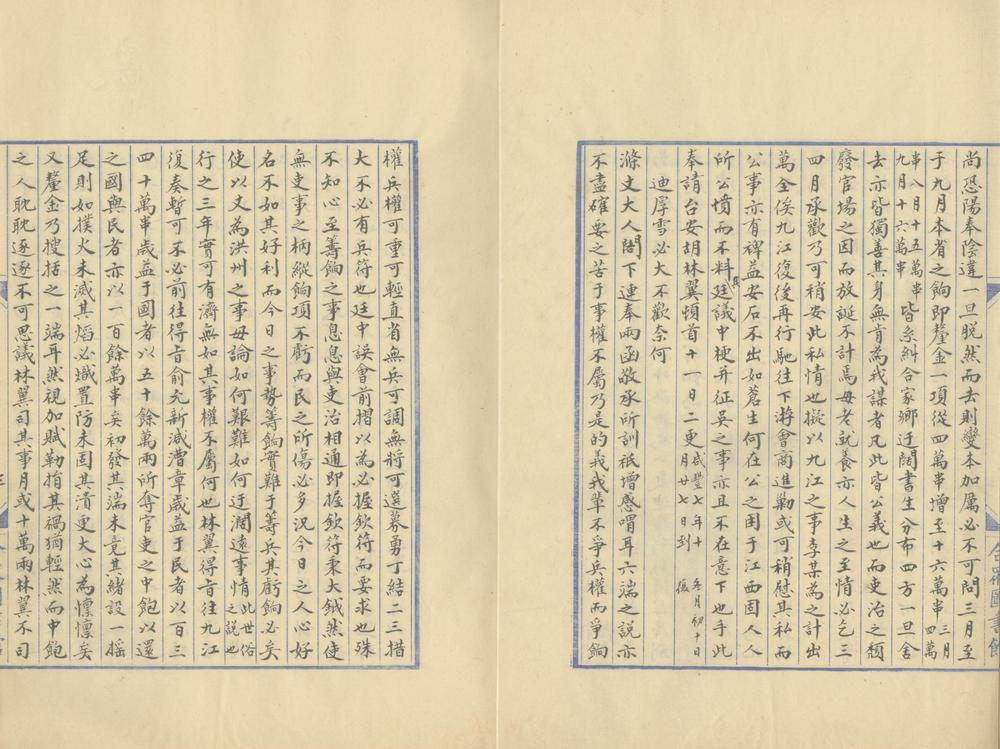 尚恐陽奉陰違一旦脱然而去則變本加厲必不可問三月至
于九月本省之餉即釐金一項從四萬串增至十六萬串三月四萬
串八月十五萬串九月十六萬串皆系糾合家鄉迂闊書生分布四方一旦舍
去亦皆獨善其身無肯為我謀者凡此皆公義也而吏治之頹
廢官場之因而放誕不計焉毋老就養亦人生之至情必乞三
四月承歡乃可稍安此私情也擬以九江之事李某為之計出
萬全俟九江復後再行馳往下游會商進勦或可稍慰其私而
公事亦有裨益安石不出如蒼生何在公之困于江西固人人
所公憤而不料其廷議中梗并征吳之事亦且不在意下也手此
奉請台安胡林翼頓首十一日二更咸豐七年十月廿七日到年月初十日
迪厚雪必大不歡奈何
滌丈大人閣下連奉兩函敬承所訓祇增感喟耳六端之說亦
不盡確要之苦于事權不屬乃是的義我輩不爭兵權而爭餉
權兵權可重可輕直省無兵可調無將可選募勇丁結二三措
大不必有兵符也廷中誤會前摺以為必握欽符而要求也殊
不知心至籌餉之事息息與吏治相通即握欽符秉大鉞然使
無吏事之柄縱餉項不虧而民之所傷必多況今日之人心好
名不如其好利而今日之事勢籌餉實難于籌兵其虧餉必矣
使以文為洪州之事毋論如何艱難如何迂濶遠事情此世俗之說也
行之三年實可有濟無如其事權不屬何也林翼得旨往九江
復奏暫可不必前往得旨俞允新減漕章歲益于民者以百三
四十萬串歲益于國者以五十餘萬兩所奪官吏之中飽以還
之國與民者亦以一百餘萬串矣初發其端未竟其緒設一搖
足則如撲火未滅其熖必熾置防未固其潰更大心為懍懍矣
又釐金乃搜括之一端耳然視加賦勒捐其禍猶輕然而中飽
之人眈眈逐逐不可思議林翼司其事月或十萬兩林翼不司